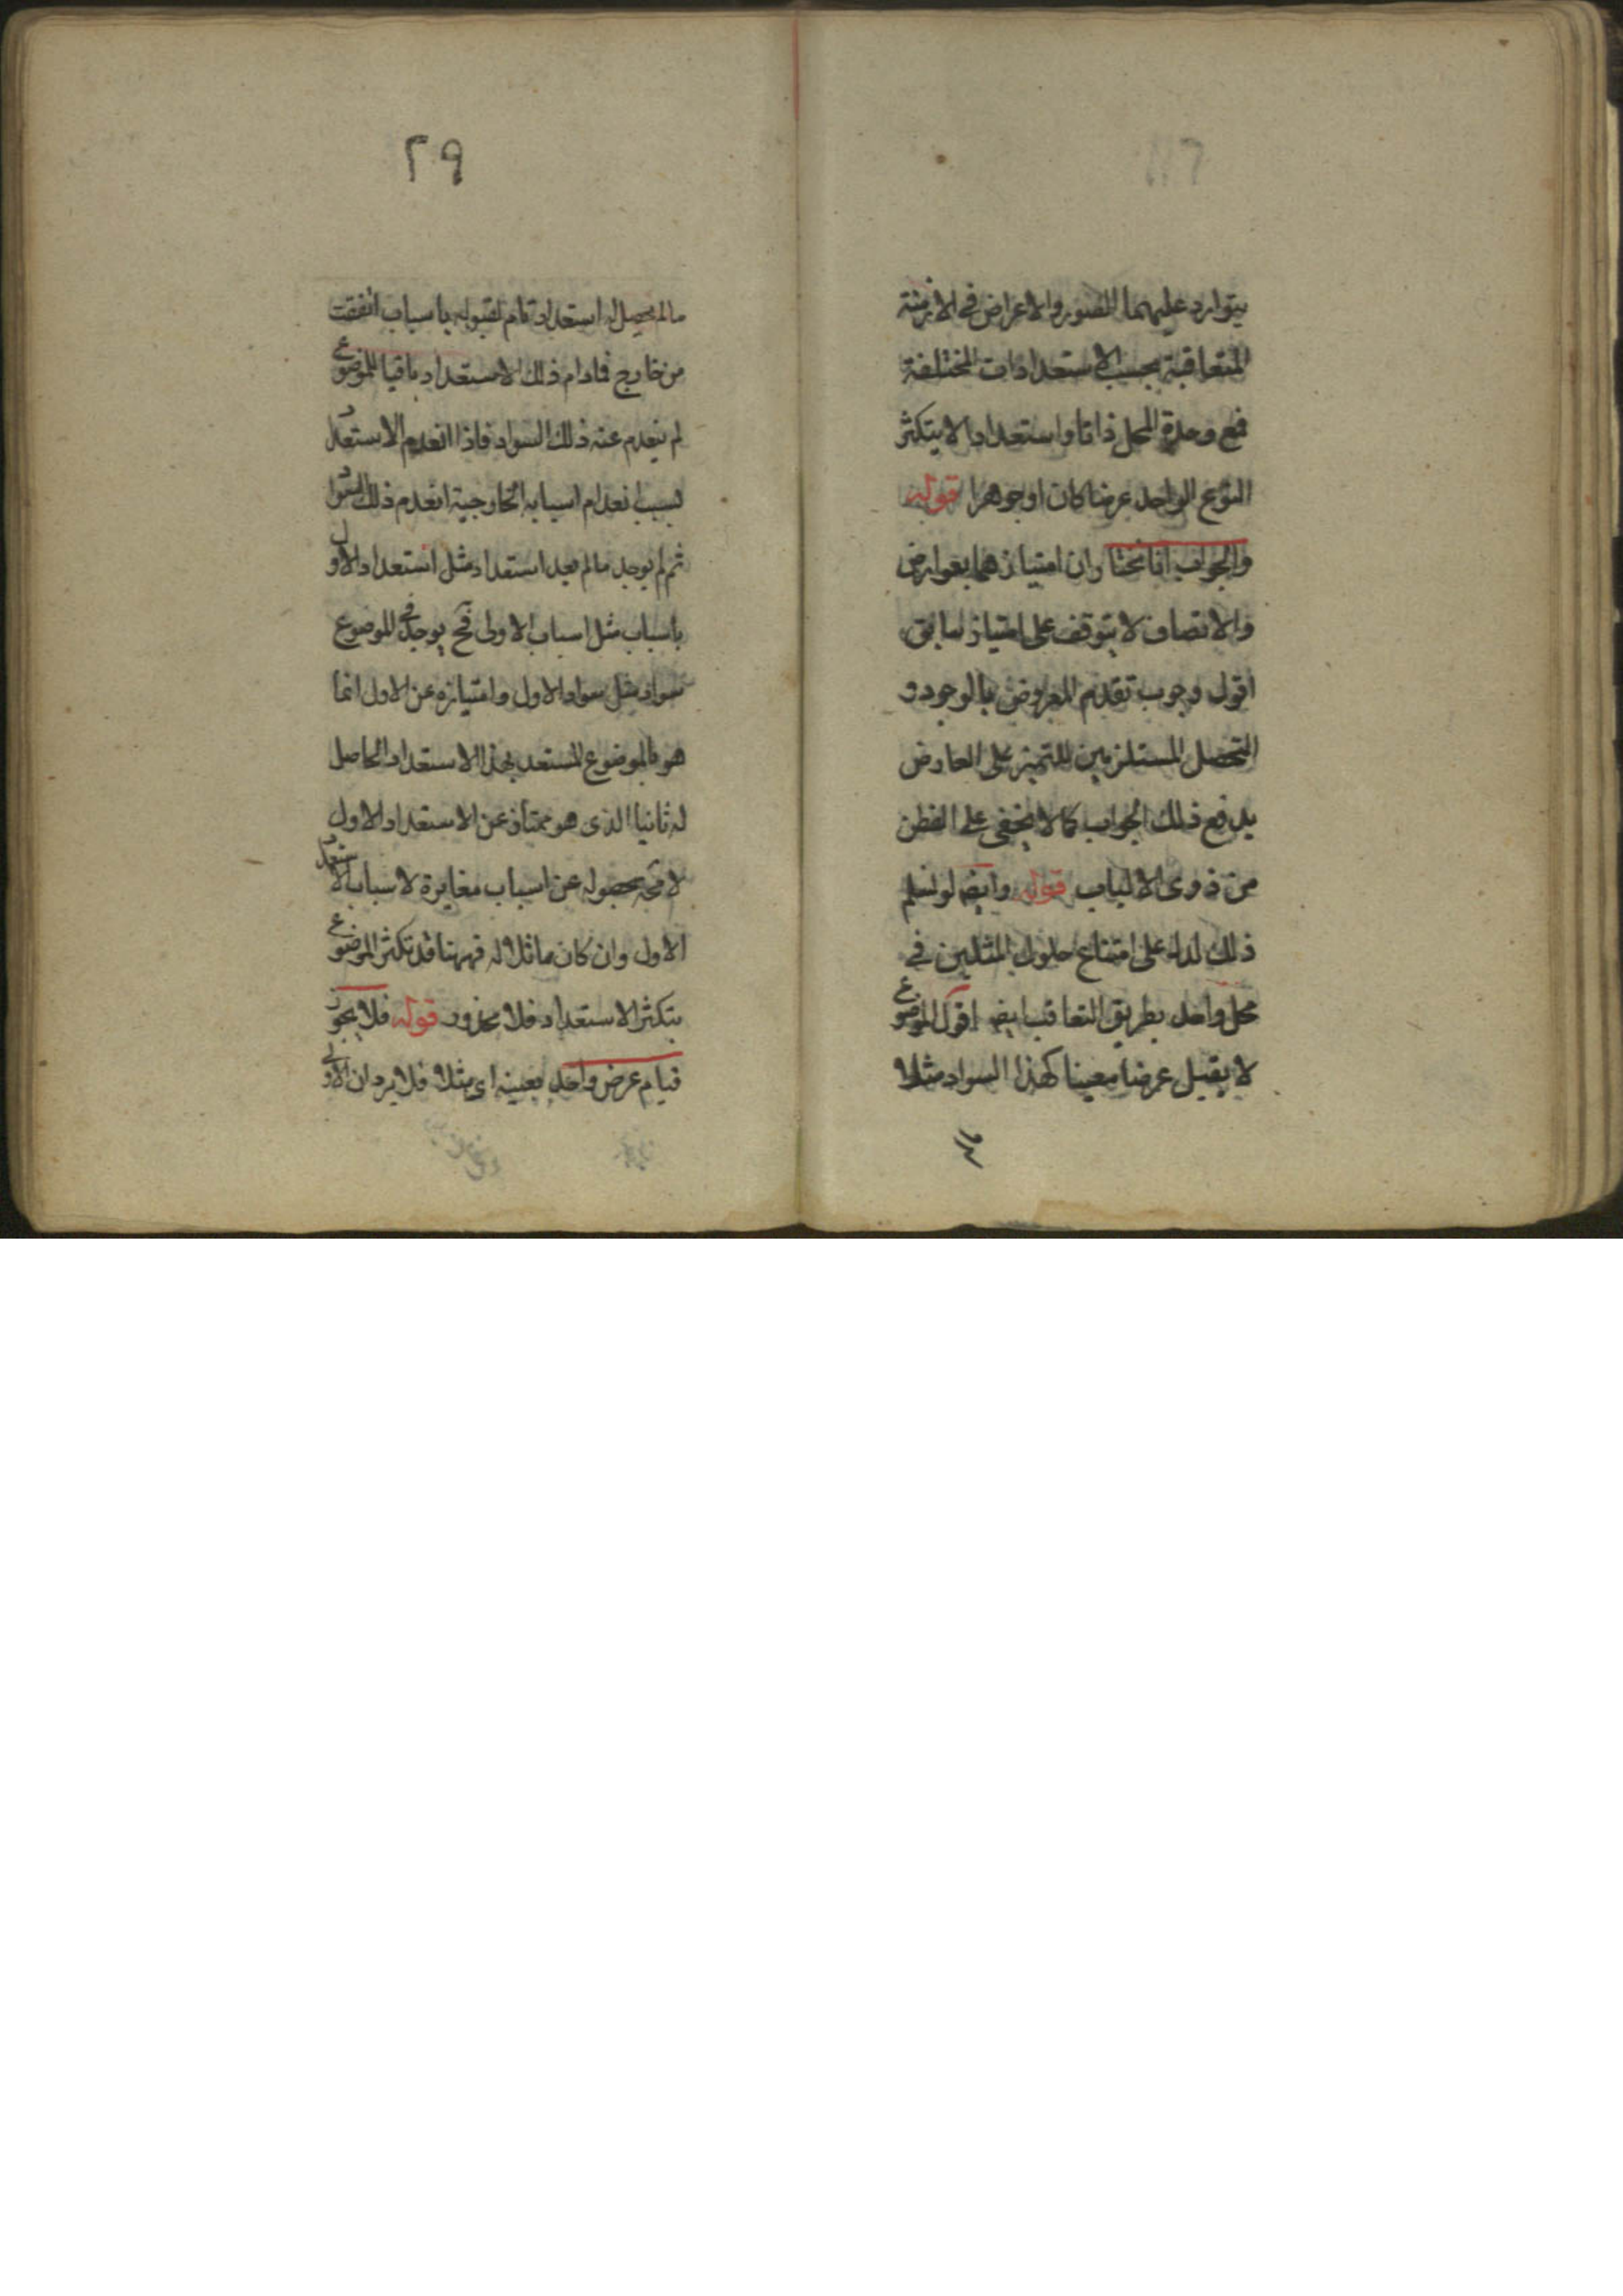 يتوارد عليهما الصور والاعراض في الازمنة
المتعاقبة بحسب الاستعدادات المختلفة
فمع وحدة المحل ذاتا واستعدادا لا يتكثر
النوع الواحد عرضا كان او جوهرا قوله
والجواب انا نختار ان امتيازهما بعوارض
والاتصاف لا يتوقف على امتياز سابق
اقول وجوب تقدم المعروض بالوجود و
التحصل المستلزمين للتميز على العارض
يدفع ذلك الجواب كما لا يخفى على الفطن
من ذوى الالباب قوله وايضا لو سلم
ذلك لدل على امتناع حلول المثلين في
محل واحد بطريق التعاقب ايضا اقول الموضوع
لا يقبل عرضا معينا كهذا السواد مثلا
٢٩
مالم يحصل له استعداد تام لقبوله باسباب اتفقت
من خارج فمادام ذلك الاستعداد باقيا للموضوع
لم ينعدم عنه ذلك السواد فاذا انعدم الاستعداد
بسبب انعدام اسبابه الخارجية انعدم ذلك السواد
ثم لم يوجد مالم يعد استعداد مثل استعداد الاول
باسباب مثل اسباب الاولى فح يوجد في الموضوع
سواد مثل سواد الاول وامتيازه عن الاول انما
هو بالموضوع المستعد بهذا الاستعداد الحاصل
له ثانيا الذى هو ممتاز عن الاستعداد الاول
بحصوله عن اسباب مغايرة لاسباب الاستعداد
الاول وان كان مماثلا له فههنا قد تكثر الموضوع
بتكثر الاستعداد فلا محذور قوله فلا يجوز
قيام عرض واحد بعينه اى مثلا فلا يرد ان الاولى